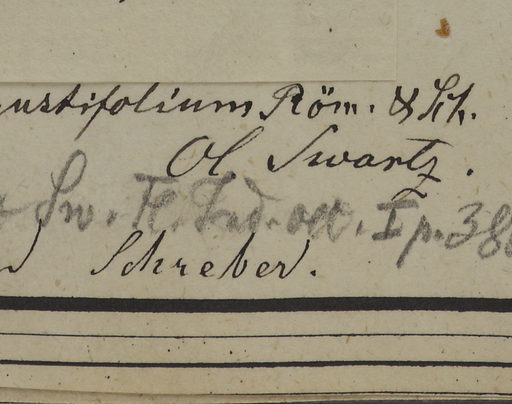 ustifolium Röm. & Sch.
Ol. Swartz.
Sw. Fl. Ind. occ. I p. 38
Schreber.